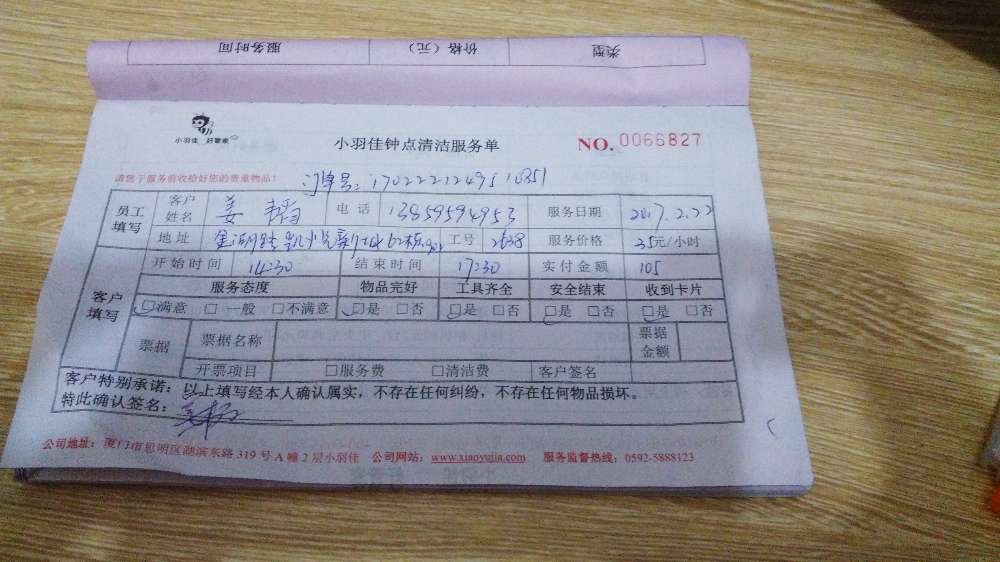 类型 价格（元） 服务时间
小羽佳 好管家
小羽佳钟点清洁服务单 NO. 0066827
请您于服务前收检好您的贵重物品！
员工填写 客户姓名 姜 电话 13859594953 服务日期 2017.2.22
地址 工号 2638 服务价格 35元/小时
客户填写 开始时间 14:30 结束时间 17:30 实付金额 105
服务态度 物品完好 工具齐全 安全结束 收到卡片
□满意 □一般 □不满意 □是 □否 □是 □否 □是 □否 □是 □否
票据 票据名称 票据金额
开票项目 □服务费 □清洁费 客户签名
客户特别承诺：以上填写经本人确认属实，不存在任何纠纷，不存在任何物品损坏。
特此确认签名：
公司地址：厦门市思明区湖滨东路 319 号 A 幢 2 层小羽佳 公司网站：www.xiaoyujia.com 服务监督热线：0592-5888123